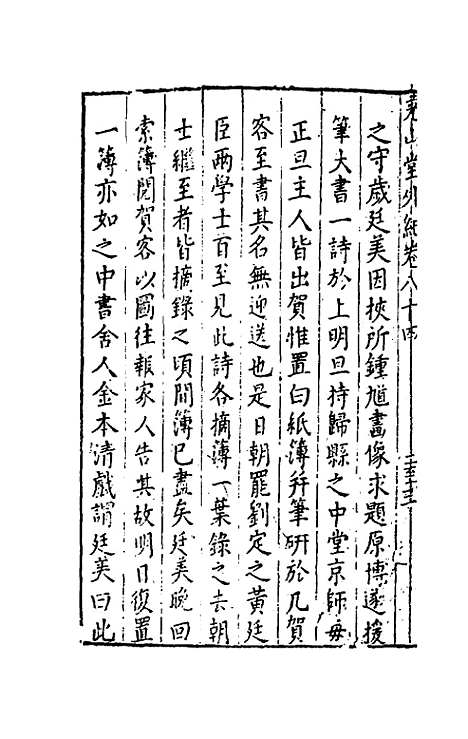 堯山堂外紀卷八十四
之守歲廷美因挾所鍾馗畫像求題原博遂援
筆大書一詩於上明旦持歸縣之中堂京師每
正旦主人皆出賀惟置白紙簿并筆硏於几賀
客至書其名無迎送也是日朝罷劉定之黄廷
臣两學士首至見此詩各摘簿一葉錄之去朝
士繼至者皆摘錄之頃間簿已盡矣廷美晚回
索簿閱賀客以圖往報家人告其故明日復置
一簿亦如之中書舍人金本清戲謂廷美曰此